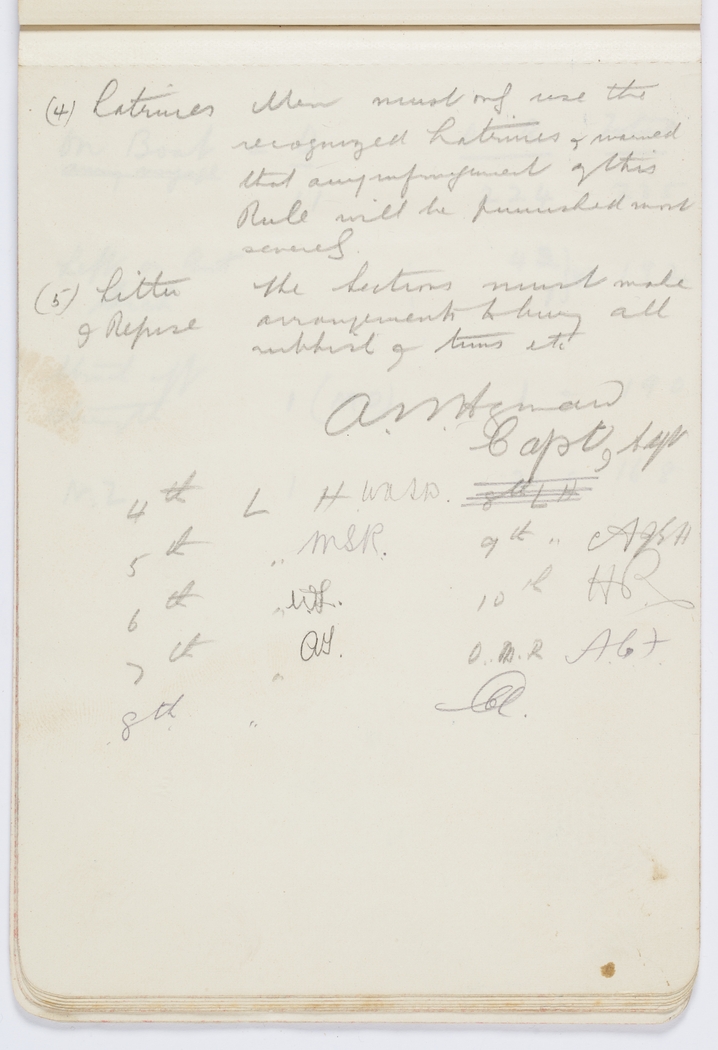 (4) Latrines Men must only use the
recognized Latrines & warned
that any infringement of this
Rule will be punished most
severely.
(5) Litter The Sections must make
& Refuse arrangements to bury all
rubbish & tins etc
Capt, Adjt
4th L H 8th L H
5th " MSR. 9th "
6th " 10th HR
7th " D.M.R
8th "